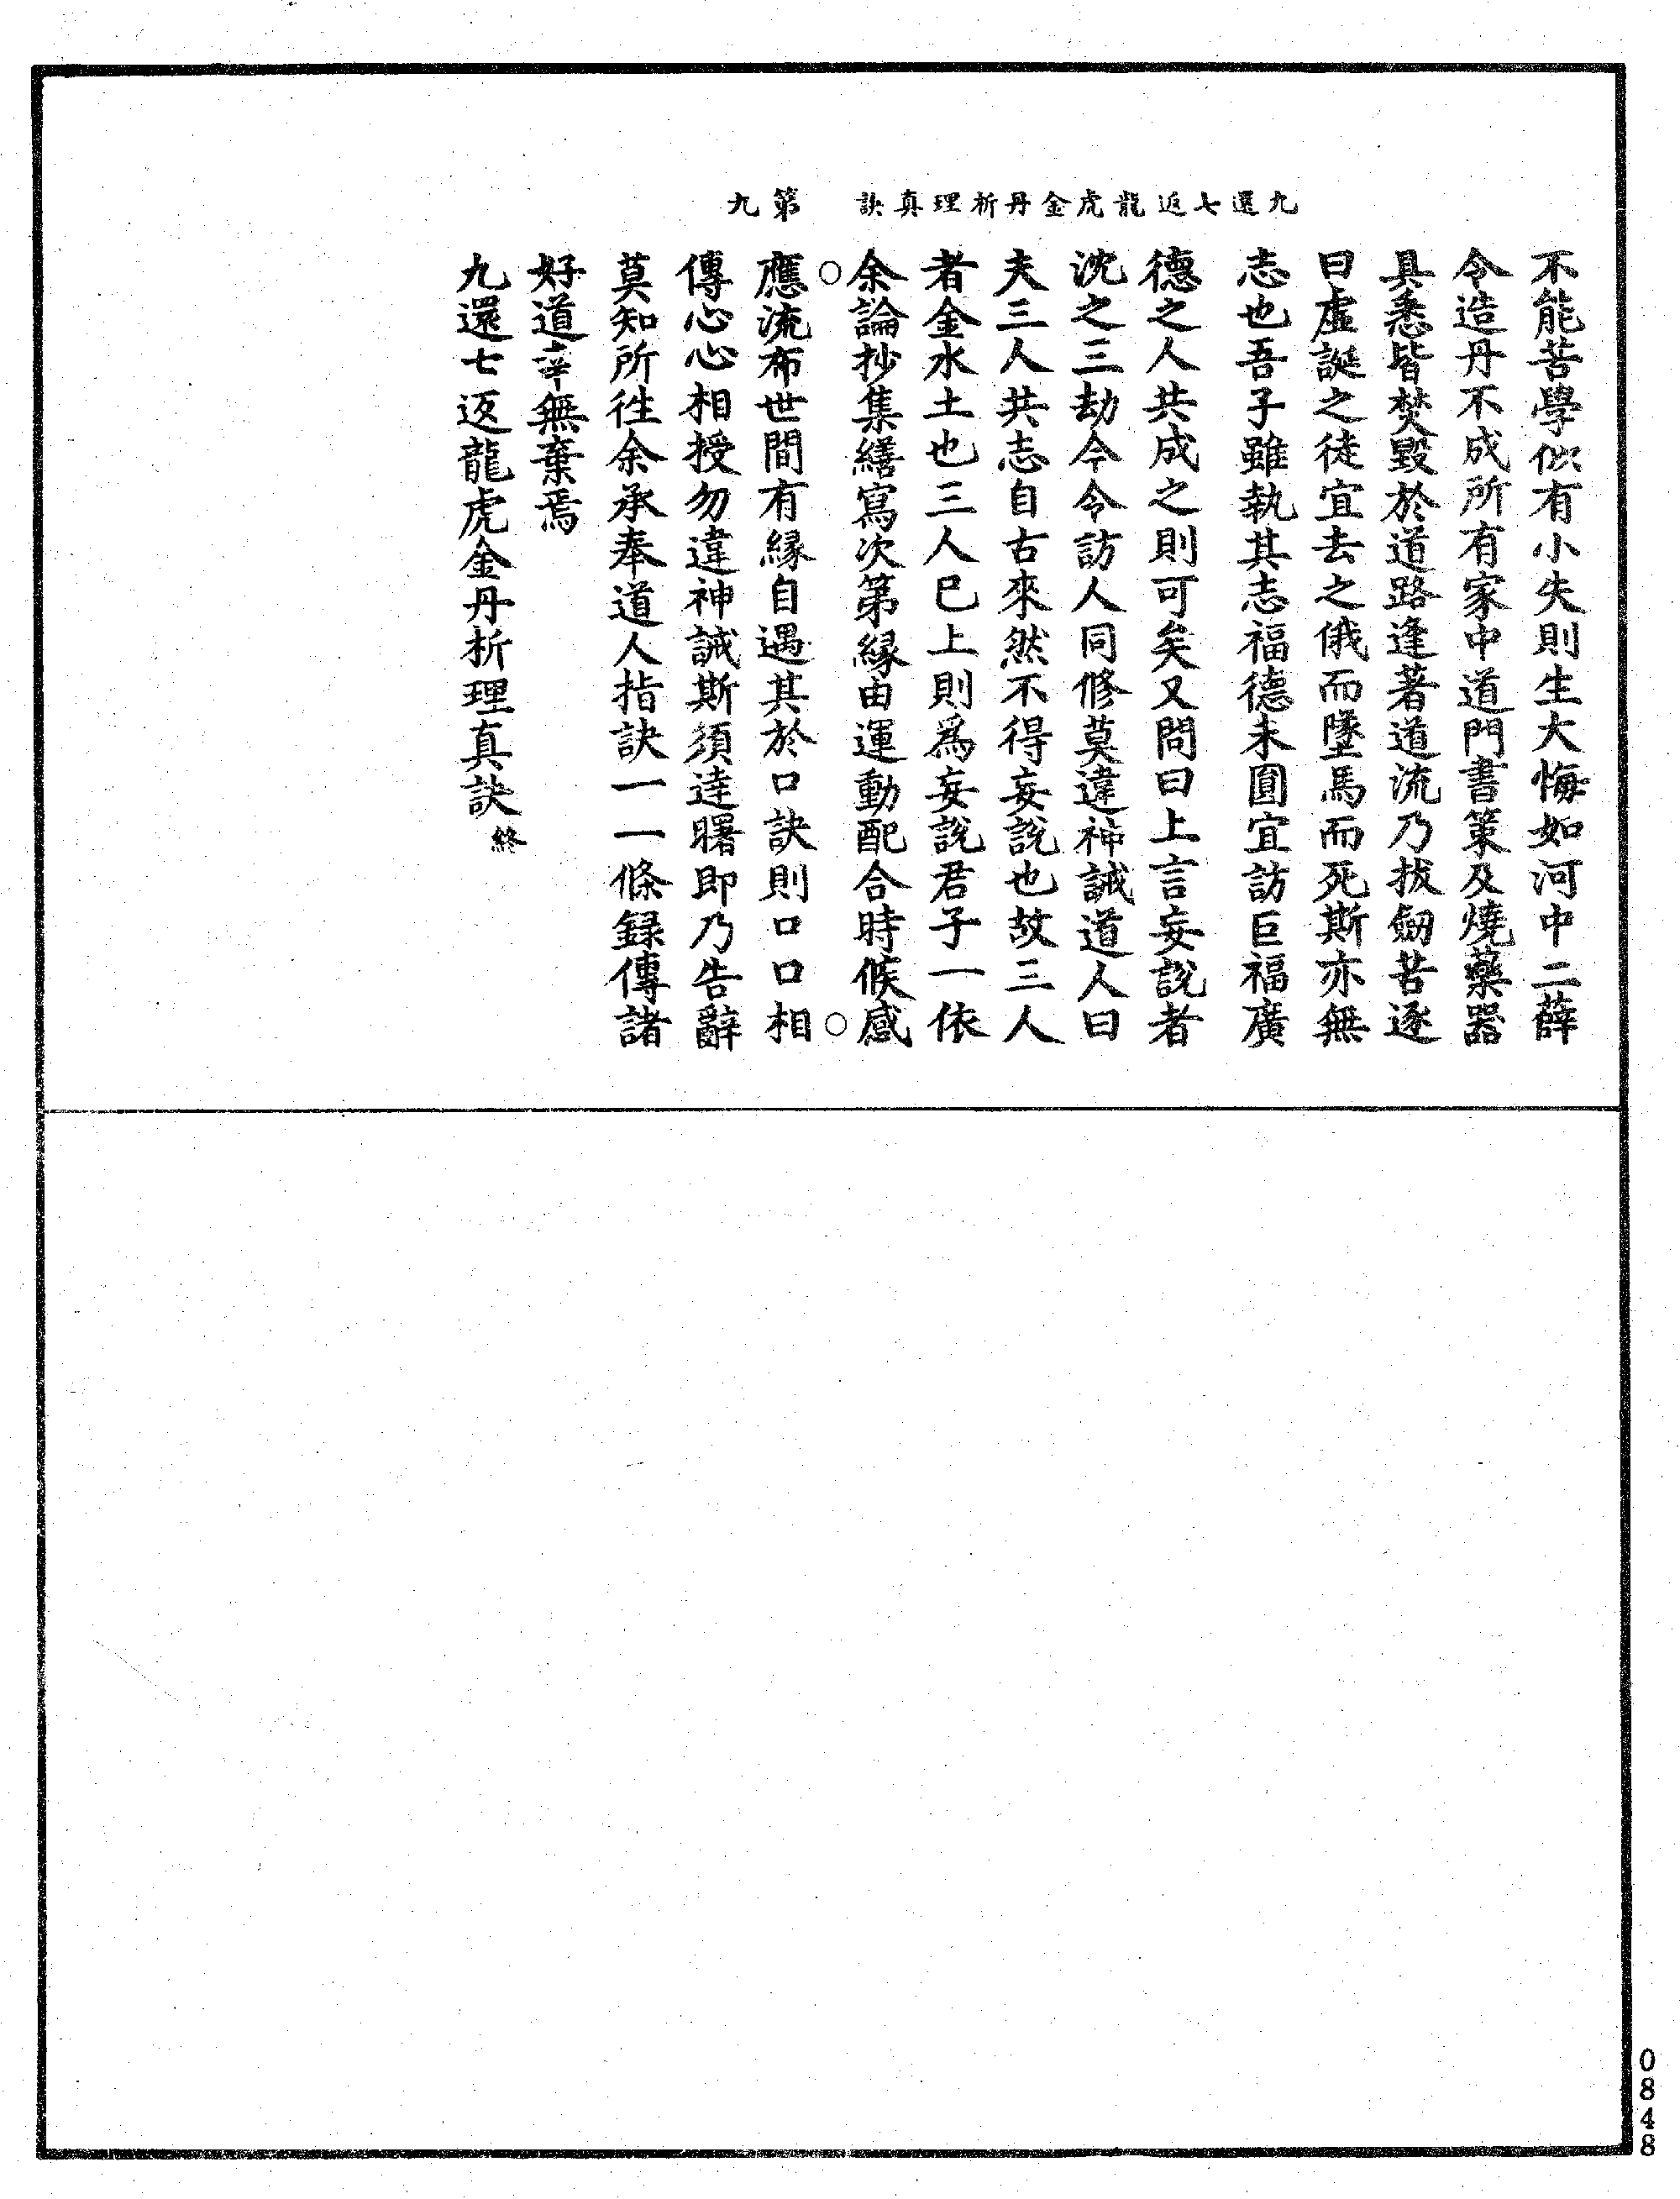 九還七返龍虎金丹析理真訣　第九
不能苦學似有小失則生大悔如河中二薛
令造丹不成所有家中道門書策及燒藥器
具悉皆焚毀於道路逢著道流乃拔劒苦逐
曰虛誕之徒宜去之俄而墜馬而死斯亦無
志也吾子雖執其志福德未圓宜訪巨福廣
德之人共成之則可矣又問曰上言妄說者
沈之三劫今令訪人同修莫違神誡道人曰
夫三人共志自古來然不得妄說也故三人
者金水土也三人已上則爲妄說君子一依
余論抄集繕寫次第縁由運動配合時候感
○○
應流布世間有縁自遇其於口訣則口口相
傳心心相授勿違神誡斯須達曙即乃告辭
莫知所徃余承奉道人指訣一一條録傳諸
好道幸無棄焉
九還七返龍虎金丹析理真訣終
0848